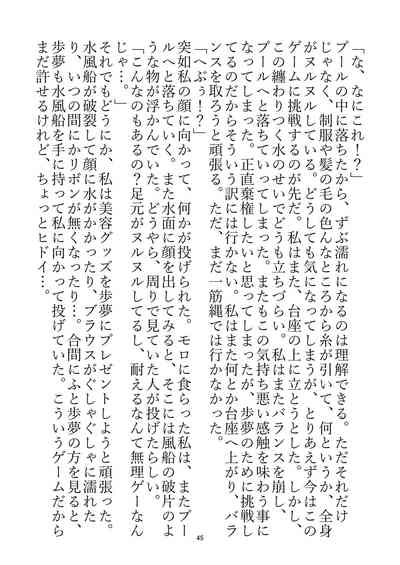 「な、なにこれ！？」
プールの中に落ちたから、ずぶ濡れになるのは理解できる。ただそれだけ
じゃなく、制服や髪の毛の色んなところから糸が引いて、何というか、全身
がヌルヌルしている。どうしても気になってしまうが、とりあえず今はこの
ゲームに挑戦するのが先だ。私はまた、台座の上に立とうとした。しかし、
この纏わりつく水のせいでどうも立ちづらい。私はまたバランスを崩し、
プールへと落ちていってしまった。またもこの気持ち悪い感触を味わう事に
なってしまった。正直棄権したいと思ってしまったが、歩夢のために挑戦し
てるのだからそういう訳には行かない。私はまた何とか台座へ上がり、バラ
ンスを取ろうと頑張る。ただ、まだ一筋縄では行かなかった。
「へぷぅ！？」
突如私の顔に向かって、何かが投げられた。モロに食らった私は、またプー
ルへと落ちていく。また水面に顔を出してみると、そこには風船の破片のよ
うな物が浮かんでいた。どうやら、周りで見ていた人が投げたらしい。
「こんなのもあるの？足元がヌルヌルしてるし、耐えるなんて無理ゲーなん
じゃ…。」
それでもどうにか、私は美容グッズを歩夢にプレゼントしようと頑張った。
水風船が破裂して顔に水がかかったり、ブラウスがぐしゃぐしゃに濡れた
り、いつの間にかリボンが無くなったり…。合間にふと歩夢の方を見ると、
歩夢も水風船を手に持って私に向かって投げていた。こういうゲームだから
まだ許せるけれど、ちょっとヒドイ…。
45